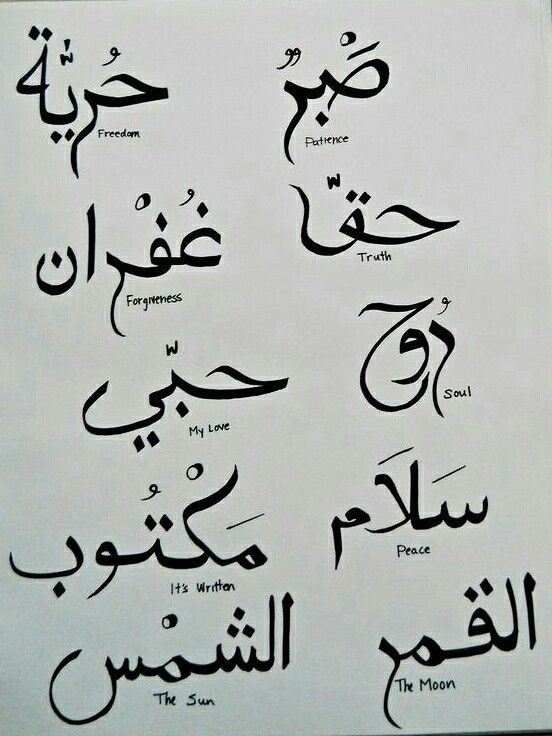 صَبْرٌ
Patience
حُريَّة
Freedom
حقّا
Truth
غُفْران
Forgiveness
رُوح
Soul
حبّي
My Love
سَلَام
Peace
مَكْتُوب
It's Written
القمر
The Moon
الشمْس
The Sun